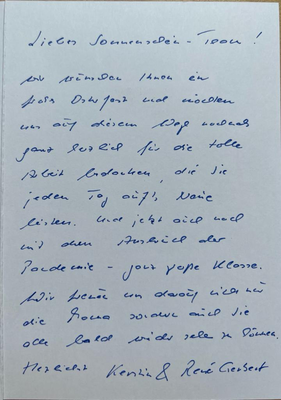 Liebes Sonnenschein-Team!
wir wünschen Ihnen ein
frohes Osterfest und möchten
uns auf diesem Weg nochmals
ganz herzlich für die tolle
Arbeit bedanken, die Sie
jeden Tag auf's Neue
leisten. Und jetzt auch noch
mit dem Ausbruch der
Pandemie - ganz große Klasse.
Wir freuen uns darauf nicht nur
die Mama sondern auch Sie
alle bald wieder sehen zu können.
Herzlichst Kerstin & René